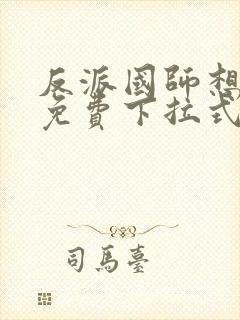 反派國師想
免費下拉式
司馬臺